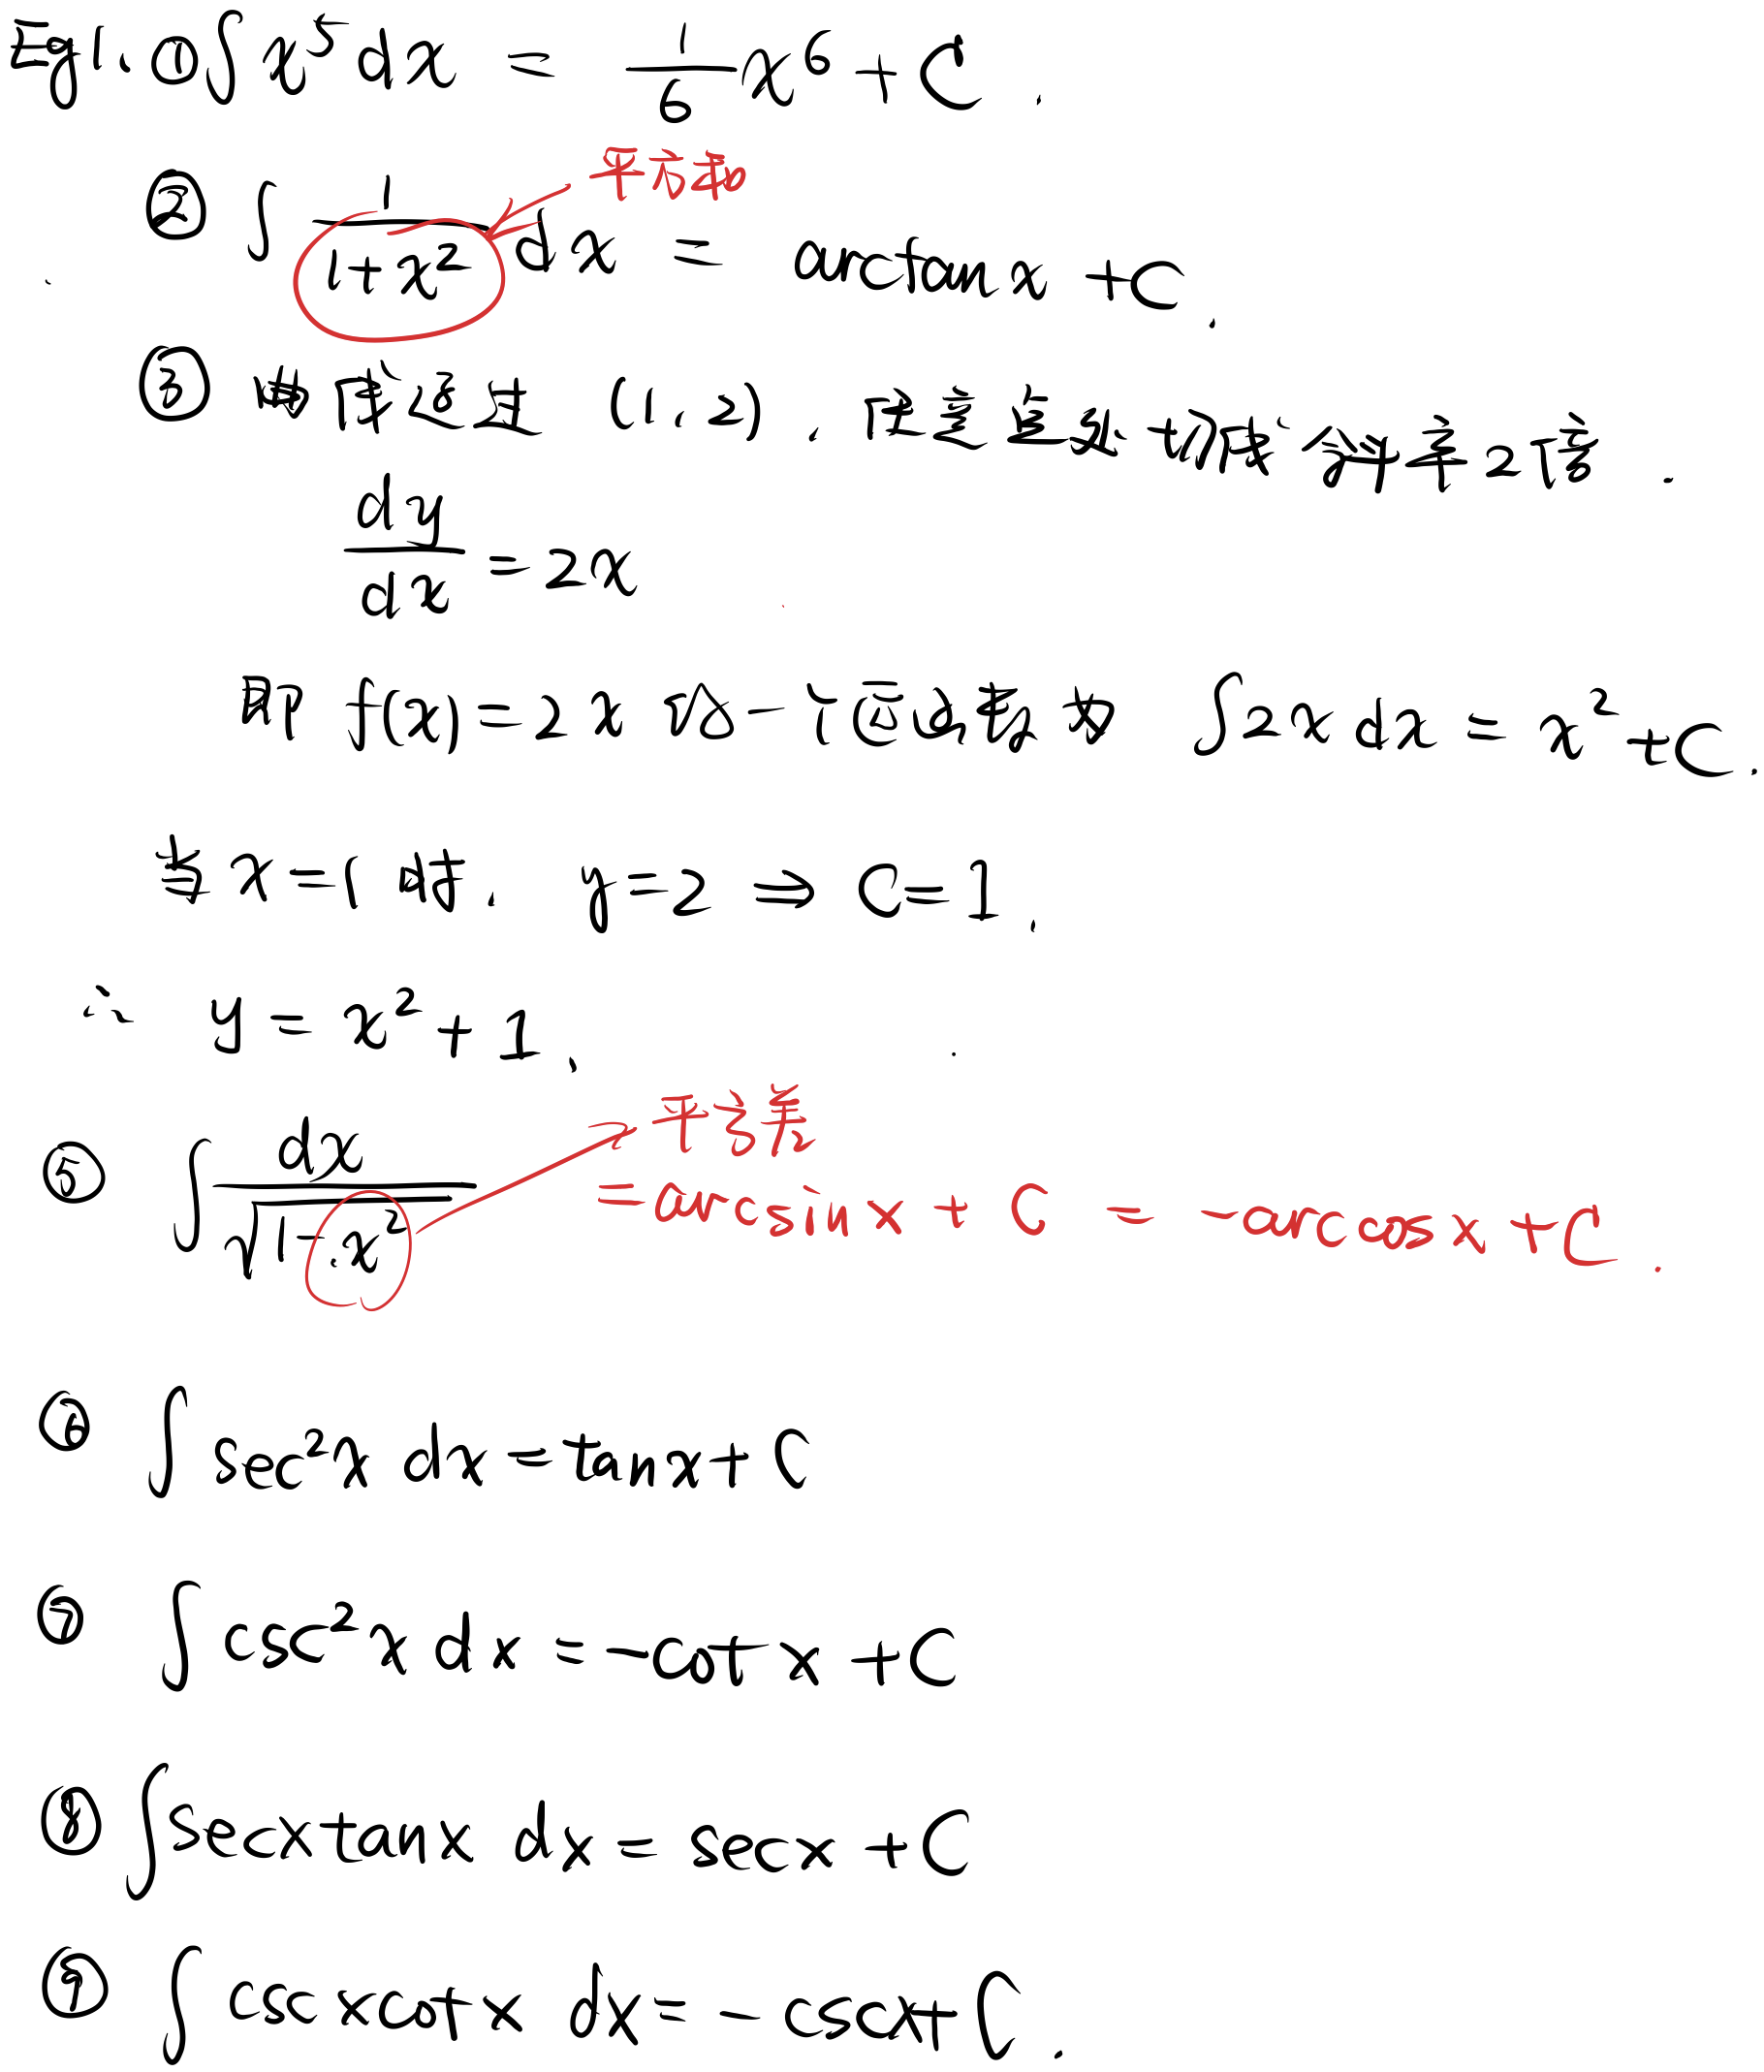 Eg1. ① ∫ x⁵ dx = 1/6 x⁶ + C.
平方和
② ∫ 1/(1+x²) dx = arctan x + C.
③ 曲线通过 (1, 2), 任意点处切线斜率2倍.
dy/dx = 2x
即 f(x) = 2x 的一个原函数 ∫2x dx = x² + C.
当 x=1 时, y=2 ⇒ C=1.
∴ y = x² + 1.
平方差
⑤ ∫ dx/√(1-x²) = arcsin x + C = -arccos x + C.
⑥ ∫ sec²x dx = tan x + C
⑦ ∫ csc²x dx = -cot x + C
⑧ ∫ secx tanx dx = secx + C
⑨ ∫ csc x cot x dx = -cscx + C.